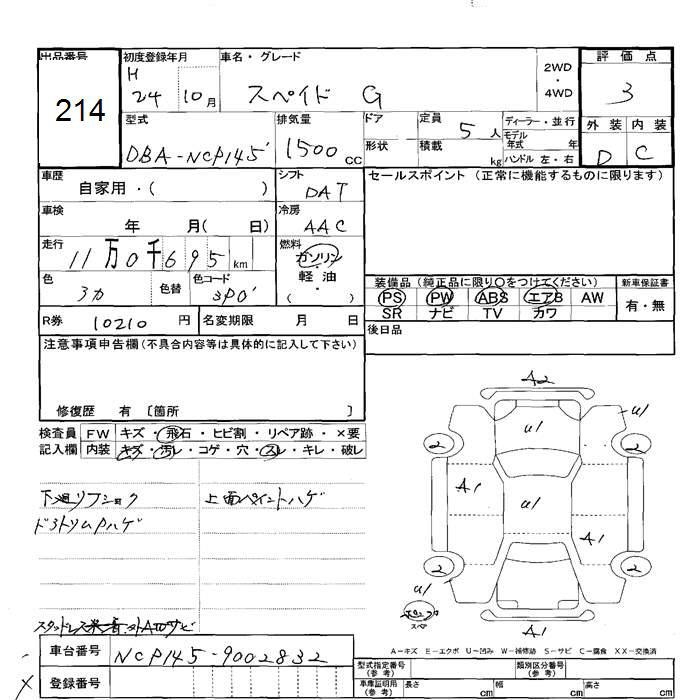 出品番号 初度登録年月 車名・グレード 2WD・4WD 評価点
214
H 24 10月 スペイド G 3
型式 排気量 ドア 定員 5 人 ディーラー・並行 外装 内装
DBA-NCP145 1500 cc 形状 積載 kg モデル年式 年 ハンドル 左・右 D C
車歴 自家用・( ) シフト DAT セールスポイント (正常に機能するものに限ります)
車検 年 月( 日) 冷房 AAC
走行 11万0千695 km 燃料 ガソリン・軽油・( )
色 色替 色コード 装備品 (純正品に限り○をつけてください) 新車保証書
PS PW ABS エアB AW 有・無
SR ナビ TV カワ
R券 10210 円 名変期限 月 日 後日品
注意事項申告欄(不具合内容等は具体的に記入して下さい)
修復歴 有 〔箇所 〕
検査員記入欄 FW キズ・飛石・ヒビ割・リペア跡・×要
内装 キズ・汚レ・コゲ・穴・スレ・キレ・破レ
上面ペイントハゲ
A2
u1 u1
2 2
A1 u1
A1
2 2
u1
スペア
A1
A-キズ E-エクボ U-凹み W-補修跡 S-サビ C-腐食 XX-交換済
車台番号 NCP145-9002832
登録番号
型式指定番号(参考) 類別区分番号(参考)
車庫証明用(参考) 長さ cm 幅 cm 高さ cm